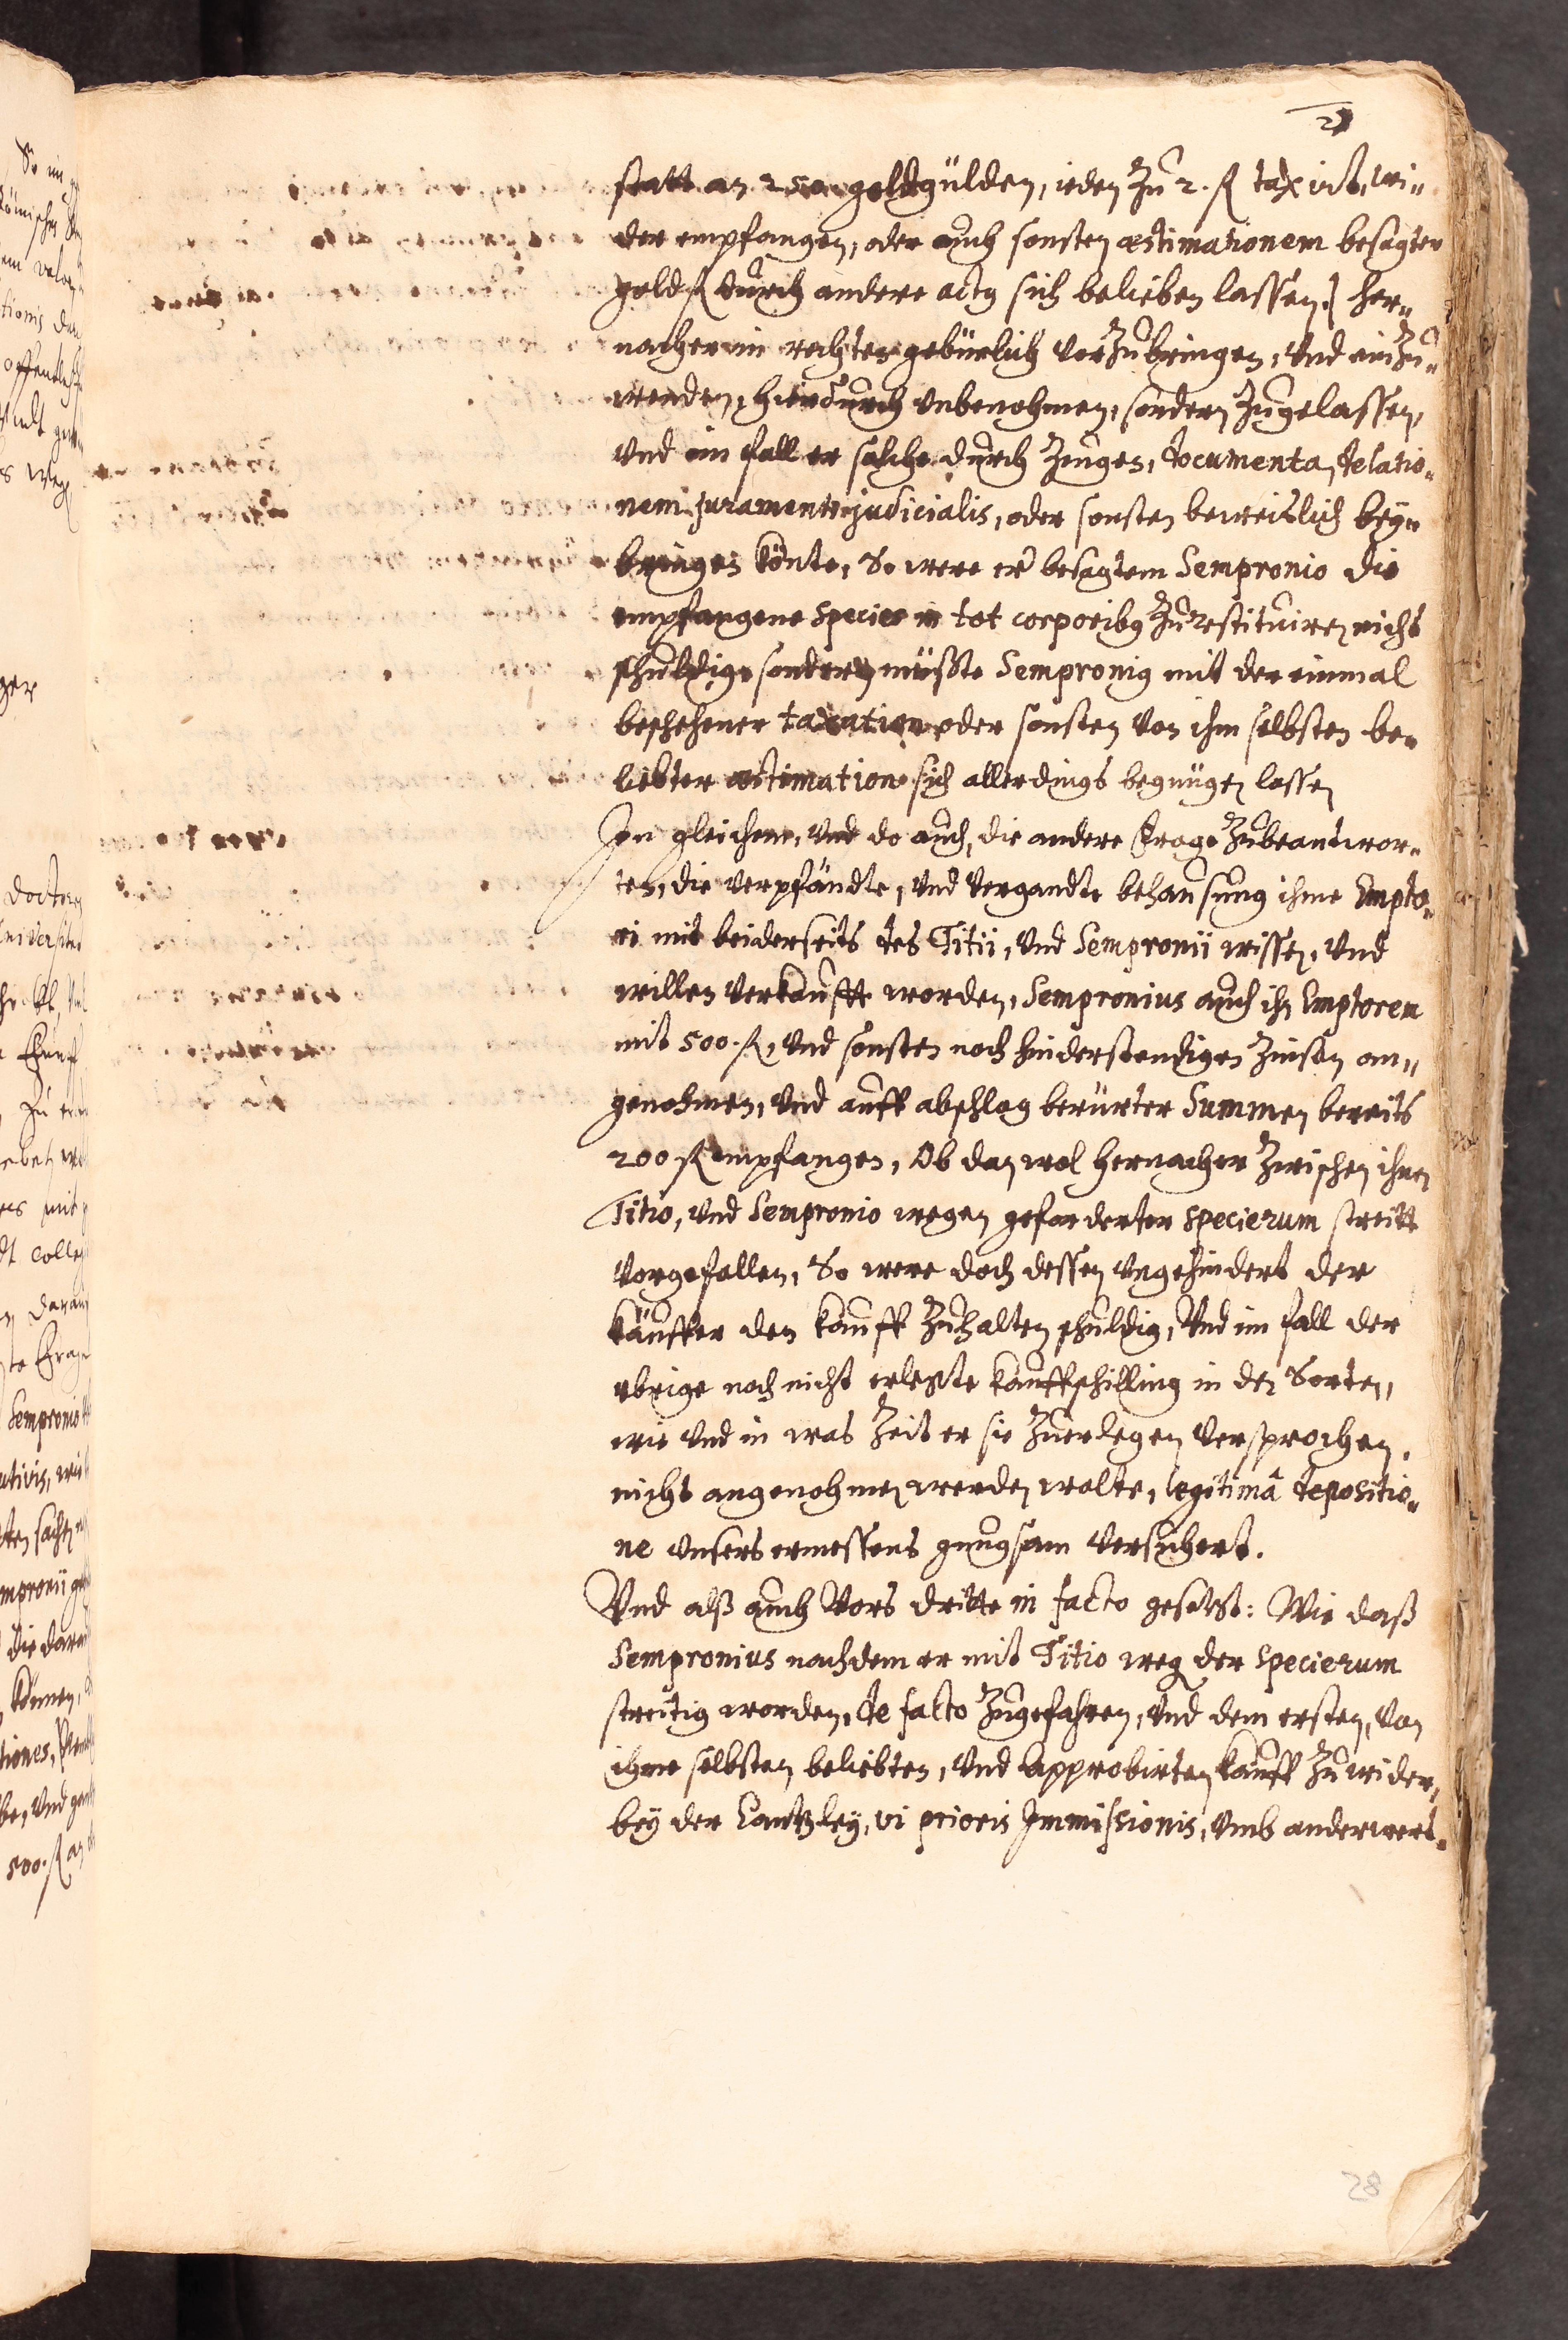 2
statt an 250 goldgülden, ieden zu 2. fl taxirt, wi„
der empfangen, oder auch sonsten æstimationem besagter
gold fl durch andere actus sich belieben lassen] her„
nacher in rechten gebürlich vorzubringen, vnd einzu„
wenden, hierdurch vnbenohmen, sondern zugelassen,
vnd im fall er solche durch zeugen, documenta, delatio„
nem juramenti judicialis, oder sonsten beweislich bey„
bringen könte, So were er besagtem Sempronio die
empfangene species in tot corporibus zu restituiren nicht
schuldig, sondern müsste Sempronius mit der einmal
beschehener taxation oder sonsten von ihm selbsten be„
liebter æstimation sich allerdings begnügen lassen
In gleichem, vnd do auch, die andere Frage zubeantwor„
ten, die verpfändte, vnd vergandte behausung ihme Empto„
ri mit beiderseits des Titii, vnd Sempronii wissen, vnd
willen verkaufft worden, Sempronius auch ihn Emptorem
mit 500. fl, vnd sonsten noch hinderstendigen Zinsen an„
genohmen, vnd auff abschlag berürter Summen bereits
200 fl empfangen, Ob dan wol hernacher zwischen ihnen
Titio, vnd Sempronio wegen geforderter specierum streitt
vorgefallen, So were doch dessen vngehindert der
käuffer den kauff zuhalten schuldig, Vnd im fall der
vbrige noch nicht erlegte kauffschilling in den Sorten,
wie vnd in was Zeit er sie zuerlegen versprochen,
nicht angenohmen werden wolte, legitimâ depositio„
ne vnsers ermessens gnugsam versichert.
Vnd alß auch Vors dritte in facto gesetzt: Wie daß
Sempronius nachdem er mit Titio weg der specierum
streitig worden, de facto zugefahren, vnd dem ersten, von
ihme selbsten beliebten, vnd approbirten kauff zuwider,
bey der Cantzley, vi prioris Immissionis, vmb anderwert„
28